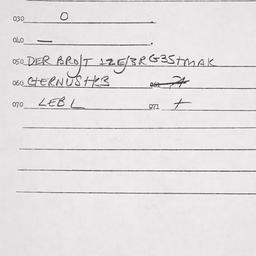 030 0
040 —
050 DER BRO/T 12E/3R G3STMAK
060 GERNUSTK3
070 LEB L 071 +